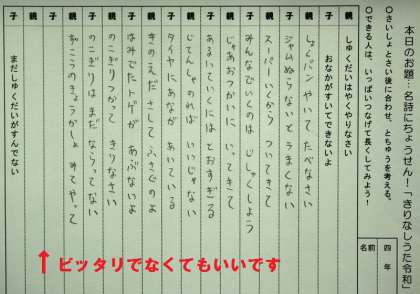 本日のお題…名詩にちょうせん!「きりなしうた令和」
○さいしょとさい後に合わせ、とちゅうを考える。
○できる人は、いっぱいつなげて長くしてみよう!
四年
名前
親 しゅくだいはやくやりなさい
子 おなかがすいてできないよ
親 しょくパン やいて たべなさい
子 ジャムぬらないと うまくない
親 スーパーいくから ついてきて
子 みんなでいくのは じしゅくしよう
親 じゃあおつかいに いってきて
子 あるいていくには とおすぎる
親 じてんしゃのれば いいじゃない
子 タイヤにあなが あいている
親 きのえだ さして ふさぐのよ
子 はみでたトゲが あぶないよ
親 のこぎりつかって きりなさい
子 のこぎりはまだ ならってない
親 ずこうのきょうかしょ みてやって
子 まだしゅくだいがすんでない
↑ピッタリでなくてもいいです